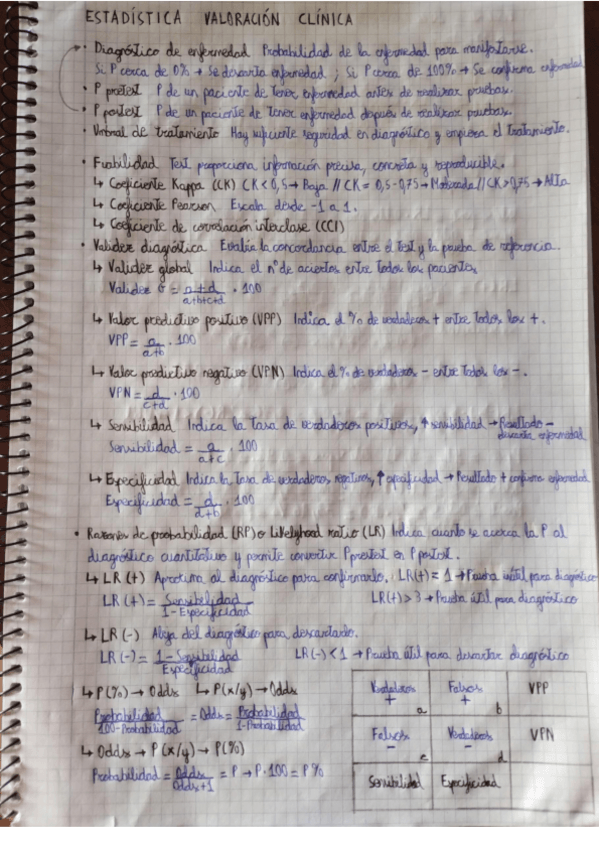 ESTADÍSTICA VALORACIÓN CLÍNICA
• Diagnóstico de enfermedad Probabilidad de la enfermedad para manifestarse.
Si P cerca de 0% → Se descarta enfermedad ; Si P cerca de 100% → Se confirma enfermedad
• P pretest P de un paciente de tener enfermedad antes de realizar pruebas.
• P postest P de un paciente de tener enfermedad después de realizar pruebas.
• Umbral de tratamiento Hay suficiente seguridad en diagnóstico y empieza el tratamiento.
• Fiabilidad Test proporciona información precisa, concreta y reproducible.
↳ Coeficiente Kappa (CK) CK < 0,5 → Baja // CK = 0,5-0,75 → Moderada // CK > 0,75 → Alta
↳ Coeficiente Pearson Escala desde -1 a 1.
↳ Coeficiente de correlación interclase (CCI)
• Validez diagnóstica Evalúa la concordancia entre el test y la prueba de referencia.
↳ Validez global Indica el nº de aciertos entre todos los pacientes
Validez G = a+d / a+b+c+d · 100
↳ Valor predictivo positivo (VPP) Indica el % de verdaderos + entre todos los +.
VPP = a / a+b · 100
↳ Valor predictivo negativo (VPN) Indica el % de verdaderos - entre todos los -.
VPN = d / c+d · 100
↳ Sensibilidad Indica la tasa de verdaderos positivos, ↑ sensibilidad → Resultado - descarta enfermedad
Sensibilidad = a / a+c · 100
↳ Especificidad Indica la tasa de verdaderos negativos, ↑ especificidad → Resultado + confirma enfermedad
Especificidad = d / d+b · 100
• Razones de probabilidad (RP) o Likelyhood ratio (LR) Indica cuanto se acerca la P al
diagnóstico cuantitativo y permite convertir P pretest en P postest.
↳ LR (+) Aproxima al diagnóstico para confirmarlo. LR(+) = 1 → Prueba inútil para diagnóstico
LR (+) = Sensibilidad / 1 - Especificidad LR(+) > 3 → Prueba útil para diagnóstico
↳ LR (-) Aleja del diagnóstico para descartarlo.
LR (-) = 1 - Sensibilidad / Especificidad LR (-) < 1 → Prueba útil para descartar diagnóstico
↳ P(%) → Odds ↳ P(x/y) → Odds
Probabilidad / 100-Probabilidad = Odds = Probabilidad / 1-Probabilidad
↳ Odds → P(x/y) → P(%)
Probabilidad = Odds / Odds+1 = P → P·100 = P%
Verdaderos + a Falsos + b VPP
Falsos - c Verdaderos - d VPN
Sensibilidad Especificidad